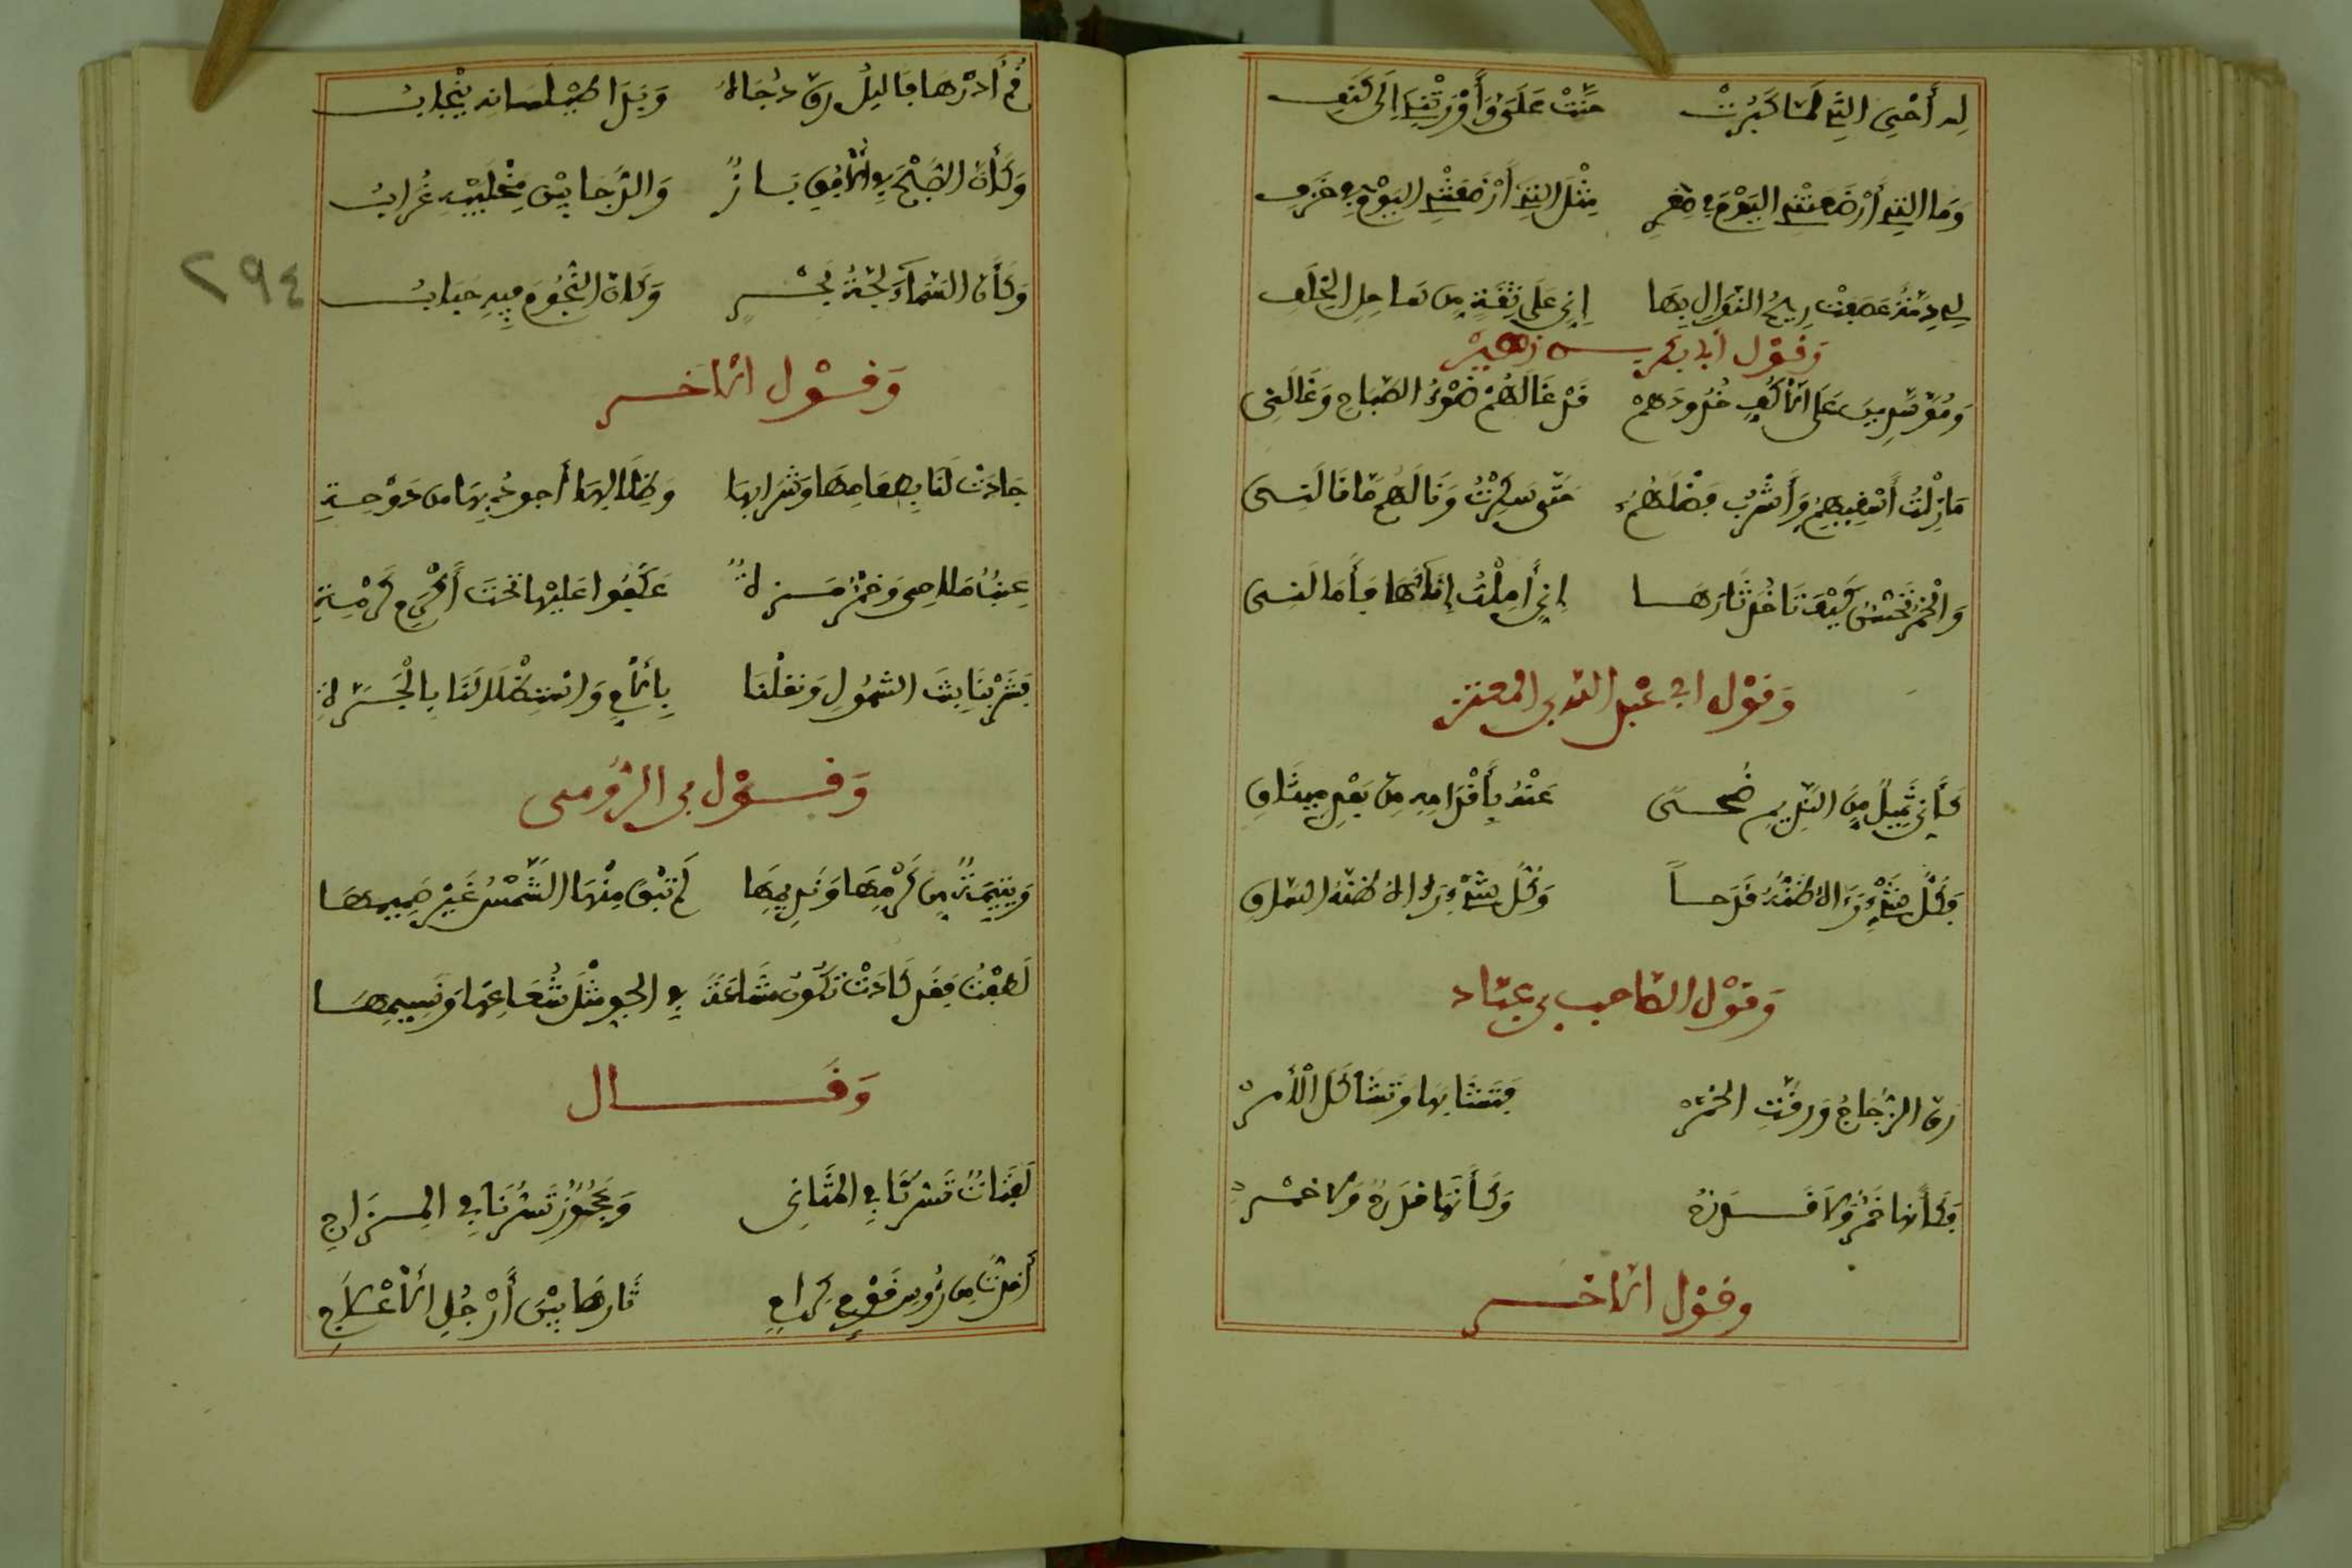 له أختي التي لما كبرت حنت علي وأورثتني إلى كنف
وما التي أرضعتني اليوم في صغر مثل التي أرضعتني اليوم في خزف
لي ذمة عصفت ريح النوال بها إني على ثقة من ساحل الخلف
وقول أبا بكر بن زهير
وموسدين على الأكف خدودهم قد غالهم ضوء الصباح وغالني
ما زلت أسقيهم وأشرب فضلهم حتى سكرت ونالهم ما نالني
والخمر تحسن كيف تاخذ ثارها إني أملت إناءها فأمالني
وقول ابي عبد الله بن المعتز
كأني ثميل من النديم ضحى عند بأقدامه من بعد ميثاق
فكل شيء رءاه ظنه قدحا وكل شيء رءاه ظنه الساق
وقول الصاحب بن عباد
رق الزجاج ورقت الخمر فتشابها وتشاكل الأمر
فكأنها خمر ولا قدح وكأنها قدح ولا خمر
وقول الآخر
قم أدرها فاليل رق دجاه وبدا طيلسانه ينجاب
وكأن الصبح في الأفق باز والدجا بين مخلبيه غراب
وكأن السماء لجة بحر وكان النجوم فيه حباب
٢٩٤
وقول الآخر
جادت لنا بطعامها وشرابها وظلالها أجود بها من دوحة
عنب ملاحي وخمر مزة عكفوا عليها تحت أكرم كرمة
فشربنا بنت الشمول ونقلنا بالأم واستظلالنا بالجدة
وقول بن الرومي
ويتيمة من كرمها ونديمها لم تبق منها الشمس غير صميمها
لطفت فقد كادت تكون مشاعة في الجو مثل شعاعها ونسيمها
وقال
لفتات تسرنا في المثاني وعجوز تسرنا في المزاج
أخذت من رؤس قوم كرام ثارها بين أرجل الأعلاج